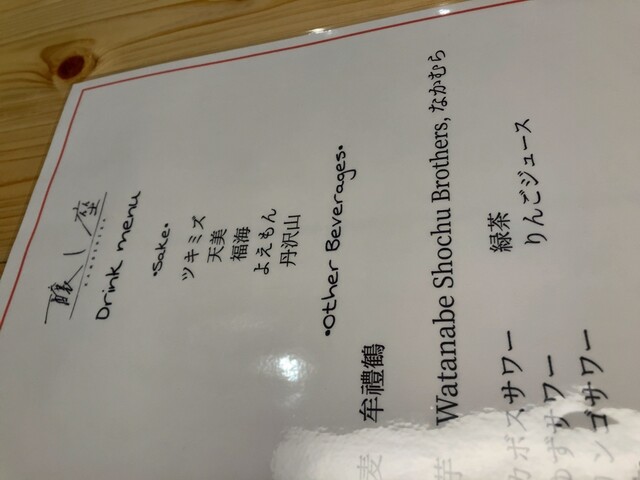 醸し座
Drink menu
•Sake•
ツキミズ
天美
福海
よえもん
丹沢山
•Other Beverages•
麦 牟禮鶴
芋 Watanabe Shochu Brothers, なかむら
カボスサワー 緑茶
ゆずサワー りんごジュース
ゴサワー